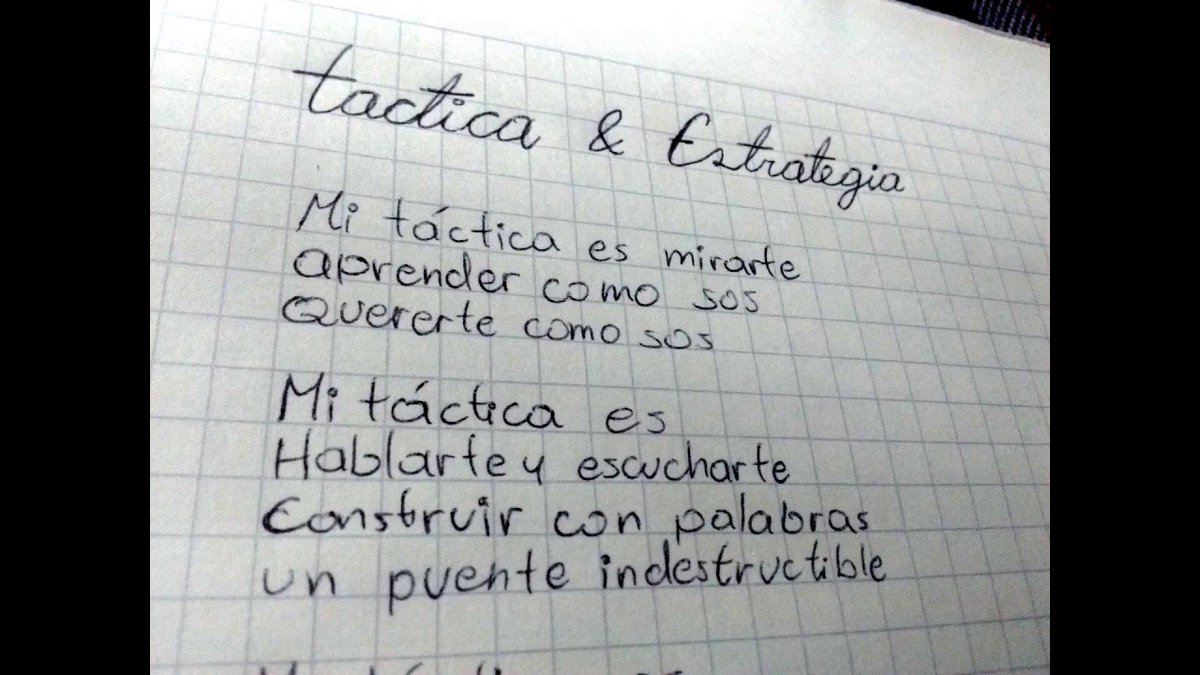 tactica & Estrategia
Mi táctica es mirarte
aprender como sos
Quererte como sos
Mi táctica es
Hablarte y escucharte
Construir con palabras
un puente indestructible